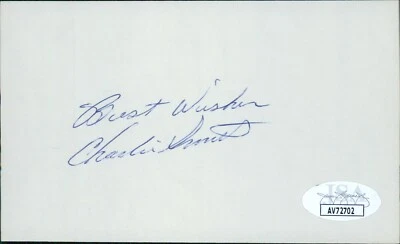 Best Wishes
Charlie Smith
JSA
AV72702